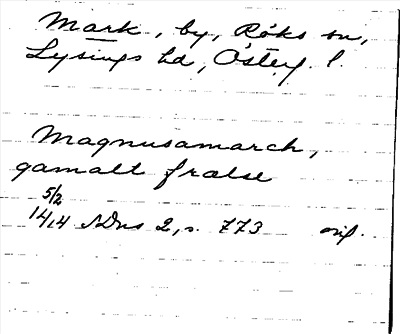 Mark, by, Röks sn,
Lysings hd, Österg. l.
Magnusamarch,
gamalt frälse
5/2
1414 SDns 2, s. 773 orig.